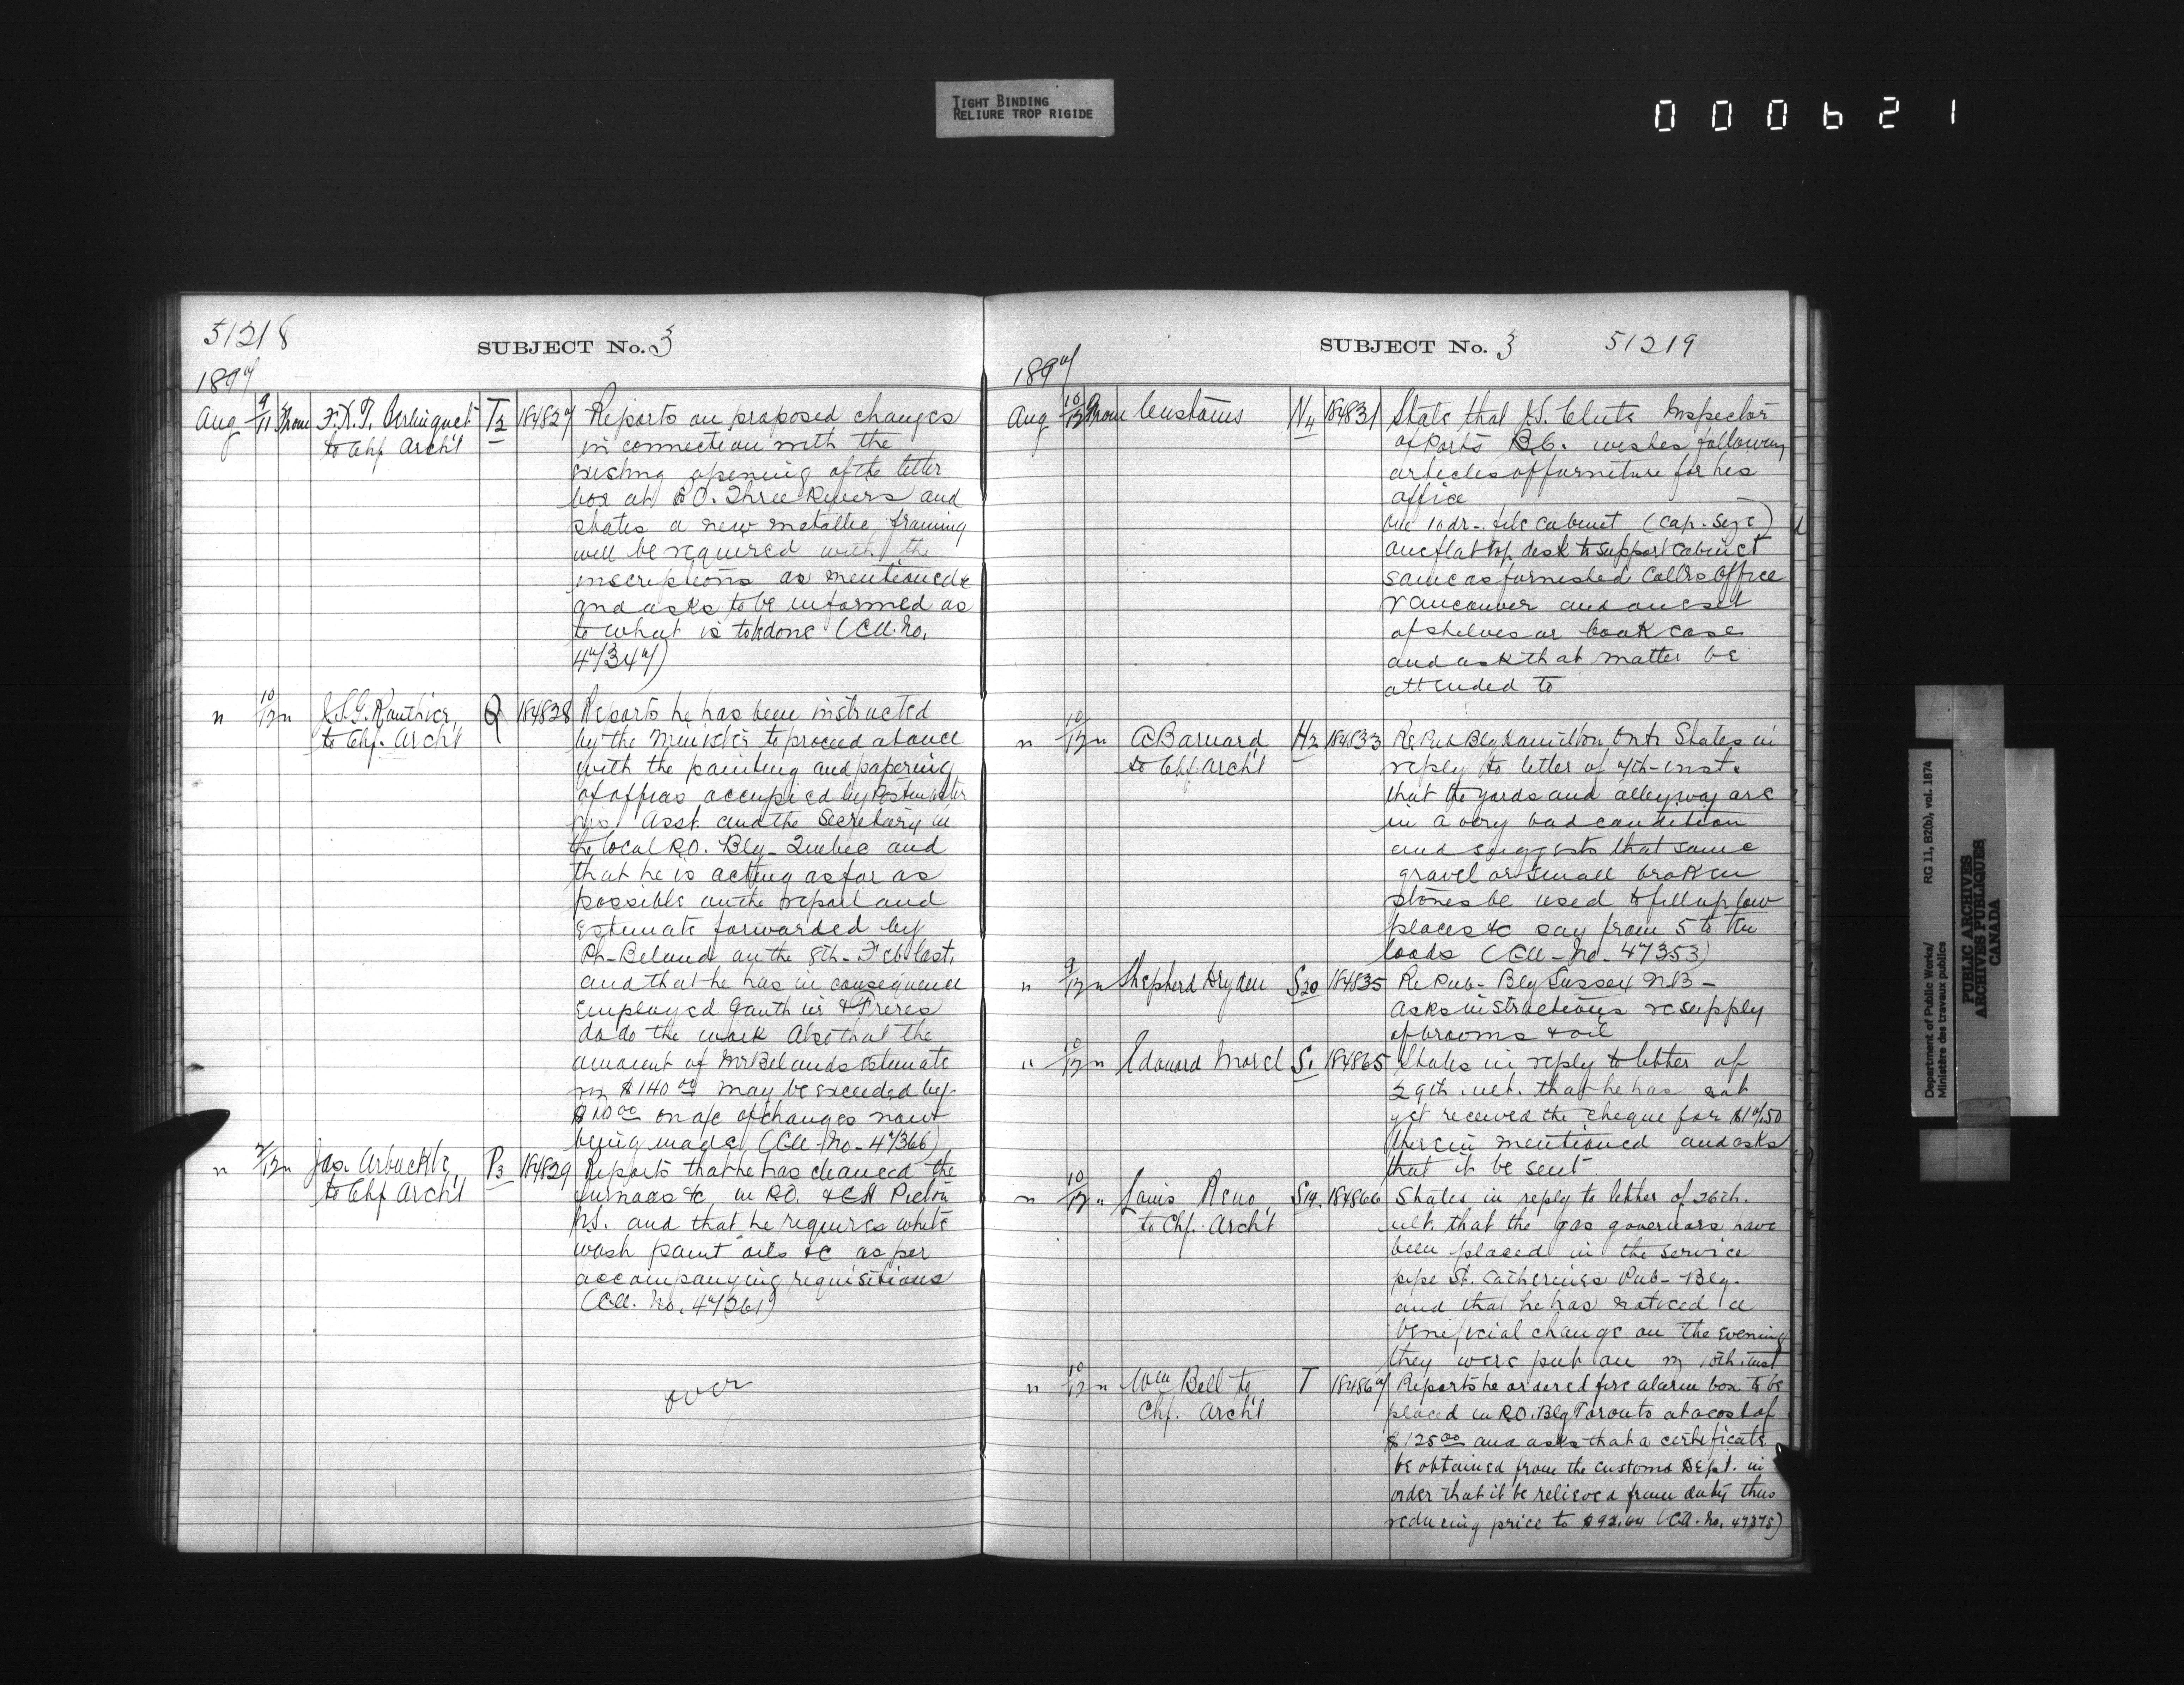 TIGHT BINDING
RELIURE TROP RIGIDE
000621
51218
SUBJECT No. 3
1897
Aug 9/11 From F.X.T. Berlinguet T2 184827 Reports on proposed changes
to Chf Arch't in connection with the
existing opening of the letter
box at P.O. Three Rivers and
states a new metallic framing
will be required with the
inscriptions as mentioned &
and asks to be informed as
to what is to be done (Coll. No.
47347)
" 10/12 " J.S.G. Routhier, Q 184828 Reports he has been instructed
to Chf. Arch't by the Minister to proceed at once
with the painting and papering
of offices occupied by Postmaster
his Asst. and the Secretary in
the local P.O. Blg. Quebec and
that he is acting as far as
possible on the report and
estimate forwarded by
Ph. Beland on the 8th. Feb last,
and that he has in consequence
employed Gauthier & Freres
to do the work Also that the
amount of Mr Belands estimate
viz $140.00 may be exceeded by
$10.00 on a/c of changes now
being made, (Coll. No. 47366)
" /12 " Jas. Arbuckle, P3 184829 Reports that he has cleaned the
to Chf Arch't furnaces &c, in P.O. & CH Pictou
N.S. and that he requires white
wash paint oils &c as per
accompanying requisitions
(Coll. No. 47361)
over
SUBJECT No. 3 51219
1897
Aug 10/12 From Customs N4 184831 State that J.S. Clute Inspector
of Ports B.C. wishes following
articles of furniture for his
office
One 10 dr. file cabinet (cap. size)
one flat top desk to support cabinet
same as furnished Coll's Office
Vancouver and one set
of shelves or book case
and ask that matter be
attended to
" 10/12 " C Barnard H2 184833 Re Pub Blg Hamilton Ont. States in
to Chf Arch't reply to letter of 7th inst.
that the yards and alleyway are
in a very bad condition
and suggests that some
gravel or small broken
stones be used to fill up low
places &c say from 5 to ten
loads (Coll. No. 47353)
" 9/12 " Shepherd Dryden S20 184835 Re Pub. Blg Sussex N.B.
asks instructions re supply
of brooms & oil
" 10/12 " Edouard Morel S1 184865 States in reply to letter of
29th. ult. that he has not
yet received the cheque for $17.50
therein mentioned and asks
that it be sent
" 10/12 " Louis Reno, S14. 184866 States in reply to letter of 26th.
to Chf. Arch't ult. that the gas governors have
been placed in the service
pipe St. Catherines Pub. Blg.
and that he has noticed a
benificial change on the evening
they were put on viz 10th. inst
" 10/12 " Wm Bell to T 184867 Reports he ordered fire alarm box to be
Chf. Arch't placed in P.O. Blg Toronto at a cost of
$125.00 and asks that a certificate
be obtained from the Customs Dept. in
order that it be relieved from duty thus
reducing price to $92.64 (Coll. No. 47375)
Department of Public Works/ RG 11, B2(b), vol. 1874
Ministère des travaux publics
PUBLIC ARCHIVES
ARCHIVES PUBLIQUES
CANADA